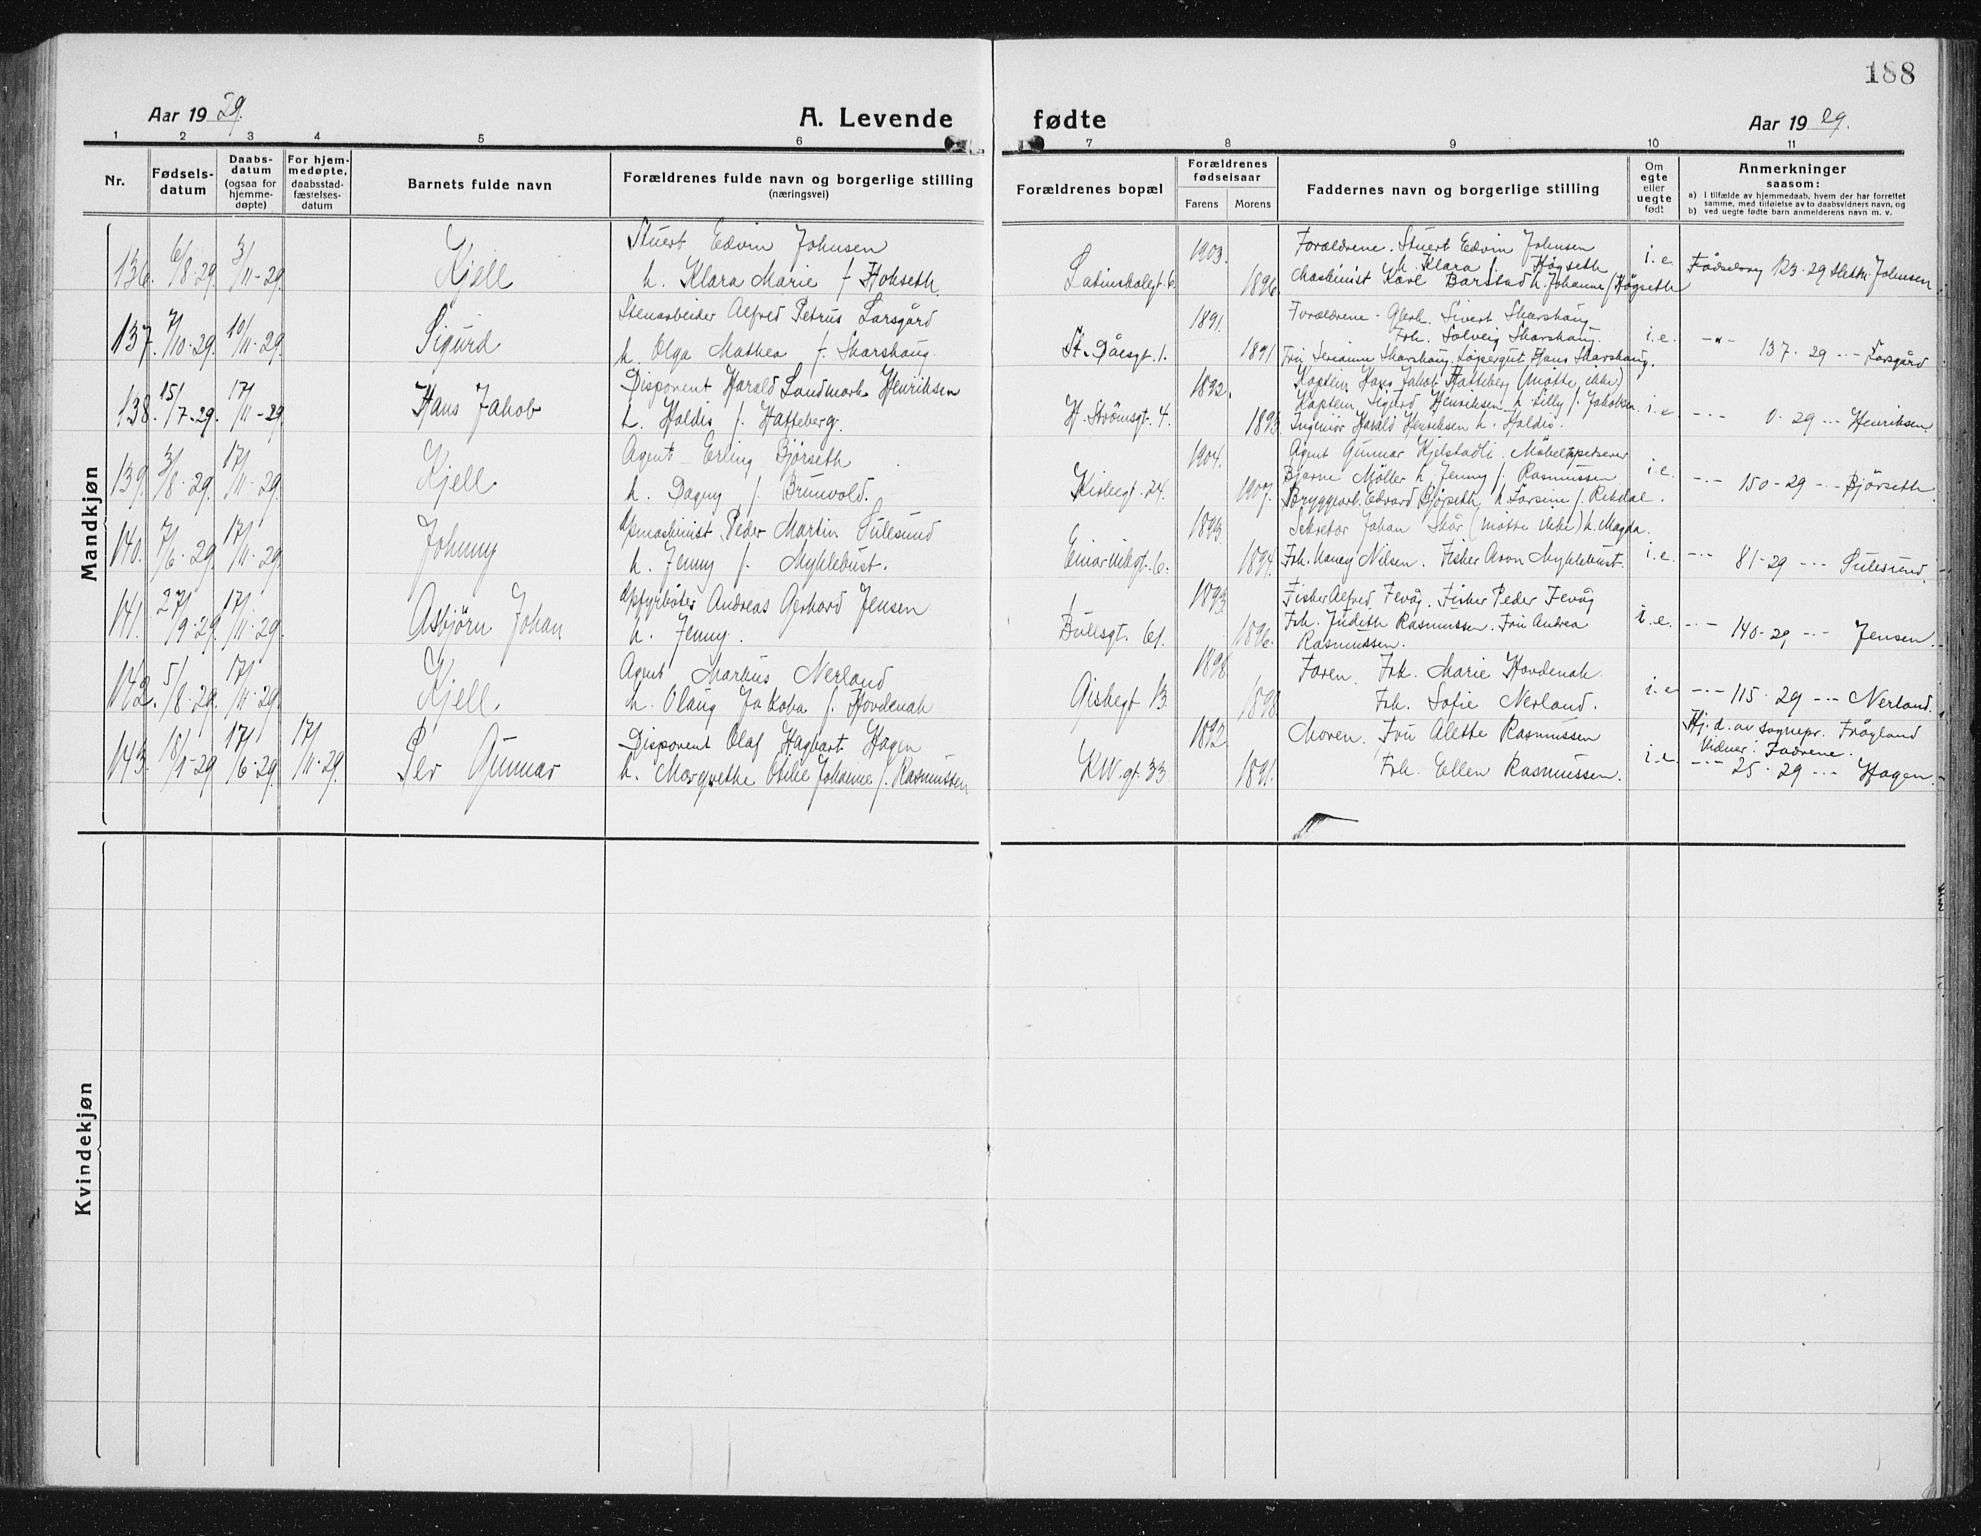 188
Aar 19 29.
A. Levende
fødte
Aar 19 29.
1 2 3 4 5 6 7 8 9 10 11
Nr.
Fødsels-
datum
Daabs-
datum
(ogsaa for
hjemme-
døpte)
For hjem-
medøpte,
daabsstad-
fæstelses-
datum
Barnets fulde navn
Forældrenes fulde navn og borgerlige stilling
(næringsvei)
Forældrenes bopæl
Forældrenes
fødselsaar
Farens Morens
Faddernes navn og borgerlige stilling
Om
egte
eller
uegte
født
Anmerkninger
saasom:
a) i tilfælde av hjemmedaab, hvem der har forrettet
samme, med tilføielse av to daabsvidners navn, og
b) ved uegte fødte barn anmelderens navn m. v.
Mandkjøn
136. 6/8-29. 3/11-29. Kjell
Stuert Edvin Johnsen
h. Klara Marie f. Hohseth
Latinskolegt. 6. 1903. 1896.
Forældrene. Stuert Edvin Johnsen
h. Klara f. Høgseth
Maskinist Karl Barstad h. Johanne f. Høgseth
i.e. 123-29 Johnsen.
137. 7/10-29. 10/11-29. Sigurd
Stenarbeider Alfred Petrus Larsgård
h. Olga Mathea f. Skarshaug.
St. Olàvsgt. 1. 1891. 1891
Forældrene. Sivert Skarshaug.
Frk. Solveig Skarshaug.
Fru Hans Skarshaug.
i.e. -"- 137-29 -"- Larsgård
138. 15/7-29. 17/11-29 Hans Jakob
Disponent Harald Landmark Henriksen
h. Haldis f. Hatteberg.
H. Strömsgt. 4. 1892. 1893.
Kaptein Hans Jakob Hatteberg (møtte ikke)
Kaptein Sigurd Henriksen h. Lilly f. Jakobsen.
Ingeniør Harald Henriksen h. Haldis.
i.e. -"- 0-29 -"- Henriksen.
139. 3/8-29. 17/11-29. Kjell
Agent Erling Bjørseth
h. Dagny f. Brunvold.
Kirkegt. 24. 1904. 1907.
Agent Gunnar Kjelstadli. Møbeltapetserer
Bjarne Møller h. Jenny f. Rasmussen
Bryggearb. Edvard Bjørseth h. Larsine f. Rekdal.
i.e. -"- 150-29 -"- Bjørseth.
140. 7/6-29. 17/11-29. Johnny
Peder Martin Sulesund
h. Jenny f. Myklebust.
Einarvikgt. 6. 1893. 1894.
Sekretær Johan Skår (møtte ikke) h. Magda.
Frk. Nancy Nilsen. Fisker Aron Myklebust.
i.e. -"- 81-29 -"- Sulesund.
141. 27/9-29. 17/11-29. Asbjörn Johan
Andreas Gerhard Jensen
h. Jenny.
Bullsgt. 61. 1893. 1896.
Fisker Alfred Fevåg. Fisker Peder Fevåg
Frk. Judith Rasmussen. Fru Andrea
Rasmussen.
i.e. -"- 140-29 -"- Jensen.
142. 5/8-29. 17/11-29. Kjell.
Agent Markus Nerland
h. Olaug Jakoba f. Hovdenak
Giskegt 13. 1898. 1898
Faren. Frk. Marie Hovdenak.
Frk. Sofie Nerland.
i.e -"- 115-29 -"- Nerland.
143. 18/1-29 17/6-29. 17/11-29. Per Gunnar
Disponent Olaf Hagbart Hagen
h. Margrethe Otilie Johanne f. Rasmussen
KW gt. 33 1892. 1891.
Moren. Fru Alette Rasmussen
Frk. Ellen Rasmussen.
i.e. Hj. d. av sognepr. Frøyland
Vidner: Fadrene.
-"- 25-29 -"- Hagen.
Kvindekjøn